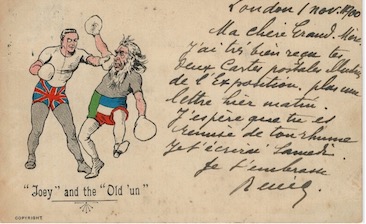 London 1 Nov. 1900
Ma chère Grand. Mère
J'ai très bien reçu tes
deux Cartes postales
de l'Exposition, plus une
lettre hier matin.
J'espère que tu es
remise de ton rhume
Je t'écrirai Samedi.
Je t'embrasse
"Joey" and the "Old 'un"
COPYRIGHT